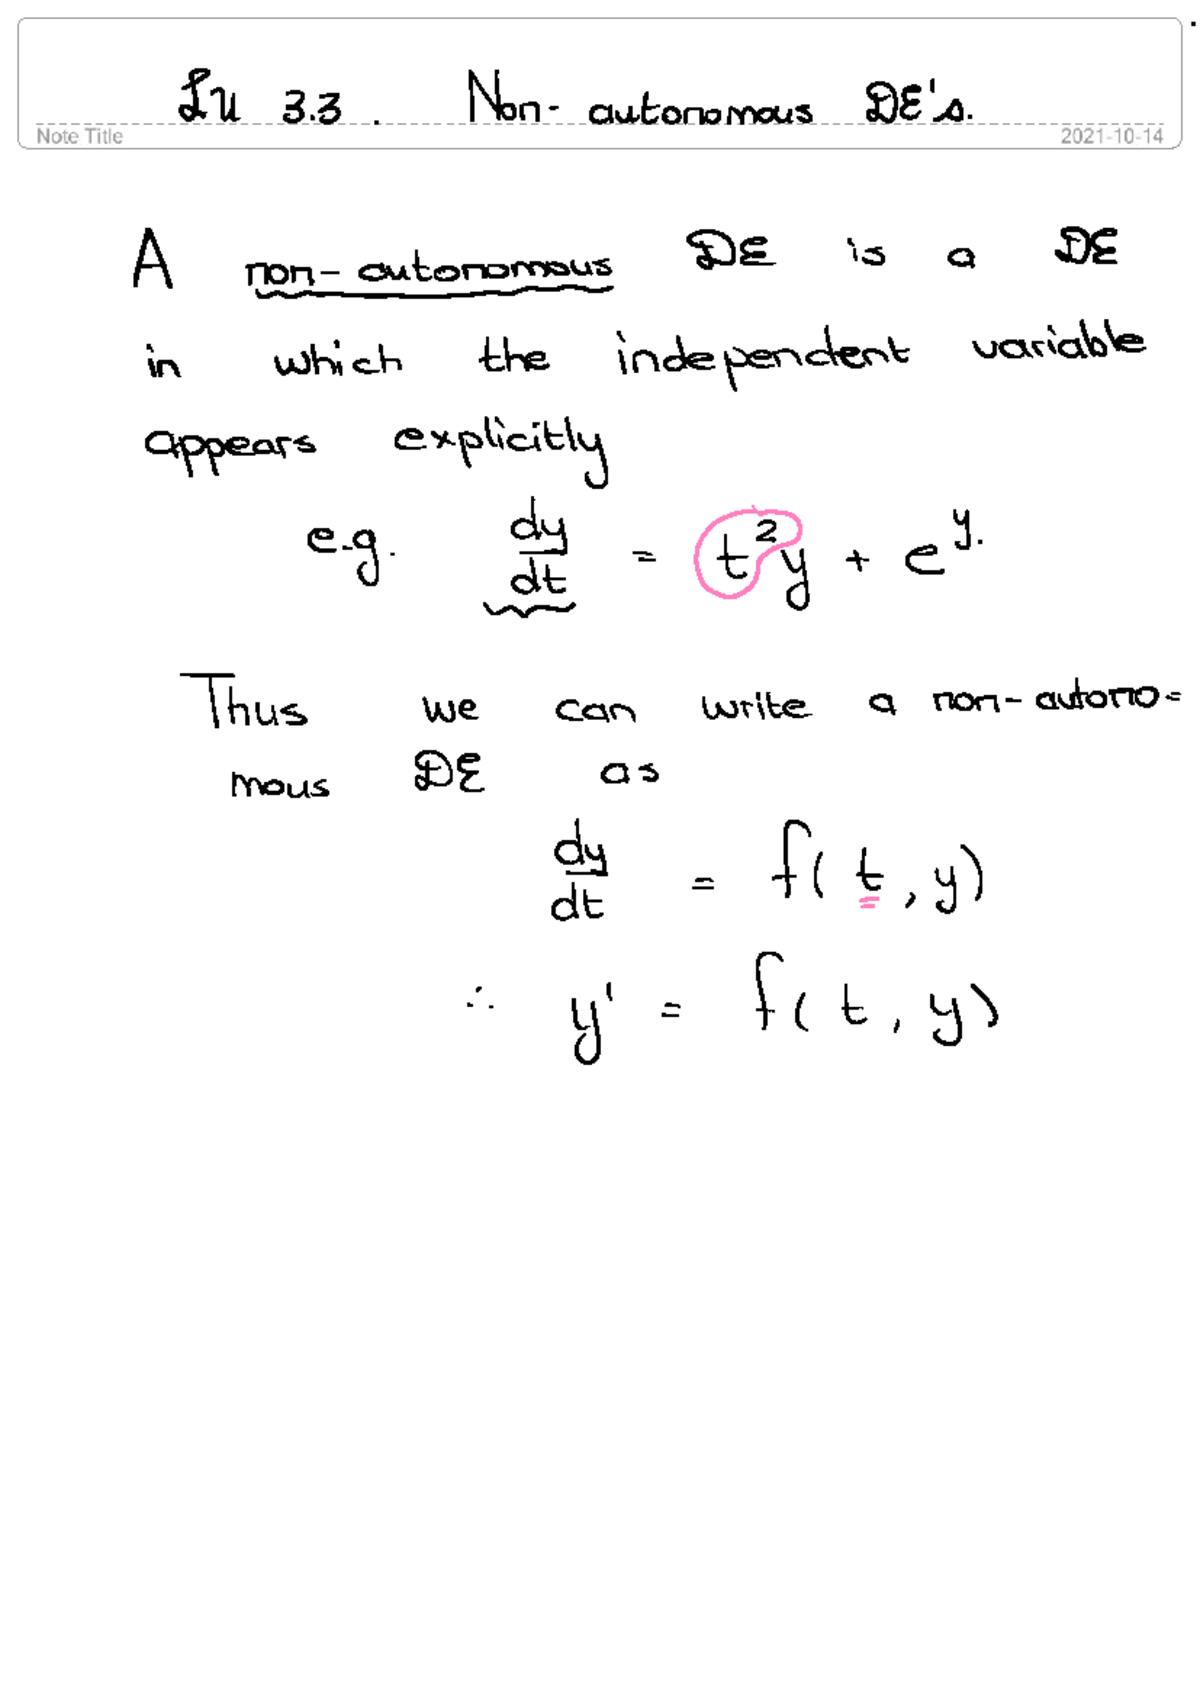 LU 3.3. Non-autonomous DE's.
Note Title 2021-10-14
A non-autonomous DE is a DE
in which the independent variable
appears explicitly
e.g. dy/dt = t²y + e^y.
Thus we can write a non-autono=
mous DE as
dy/dt = f(t, y)
∴ y' = f(t, y)